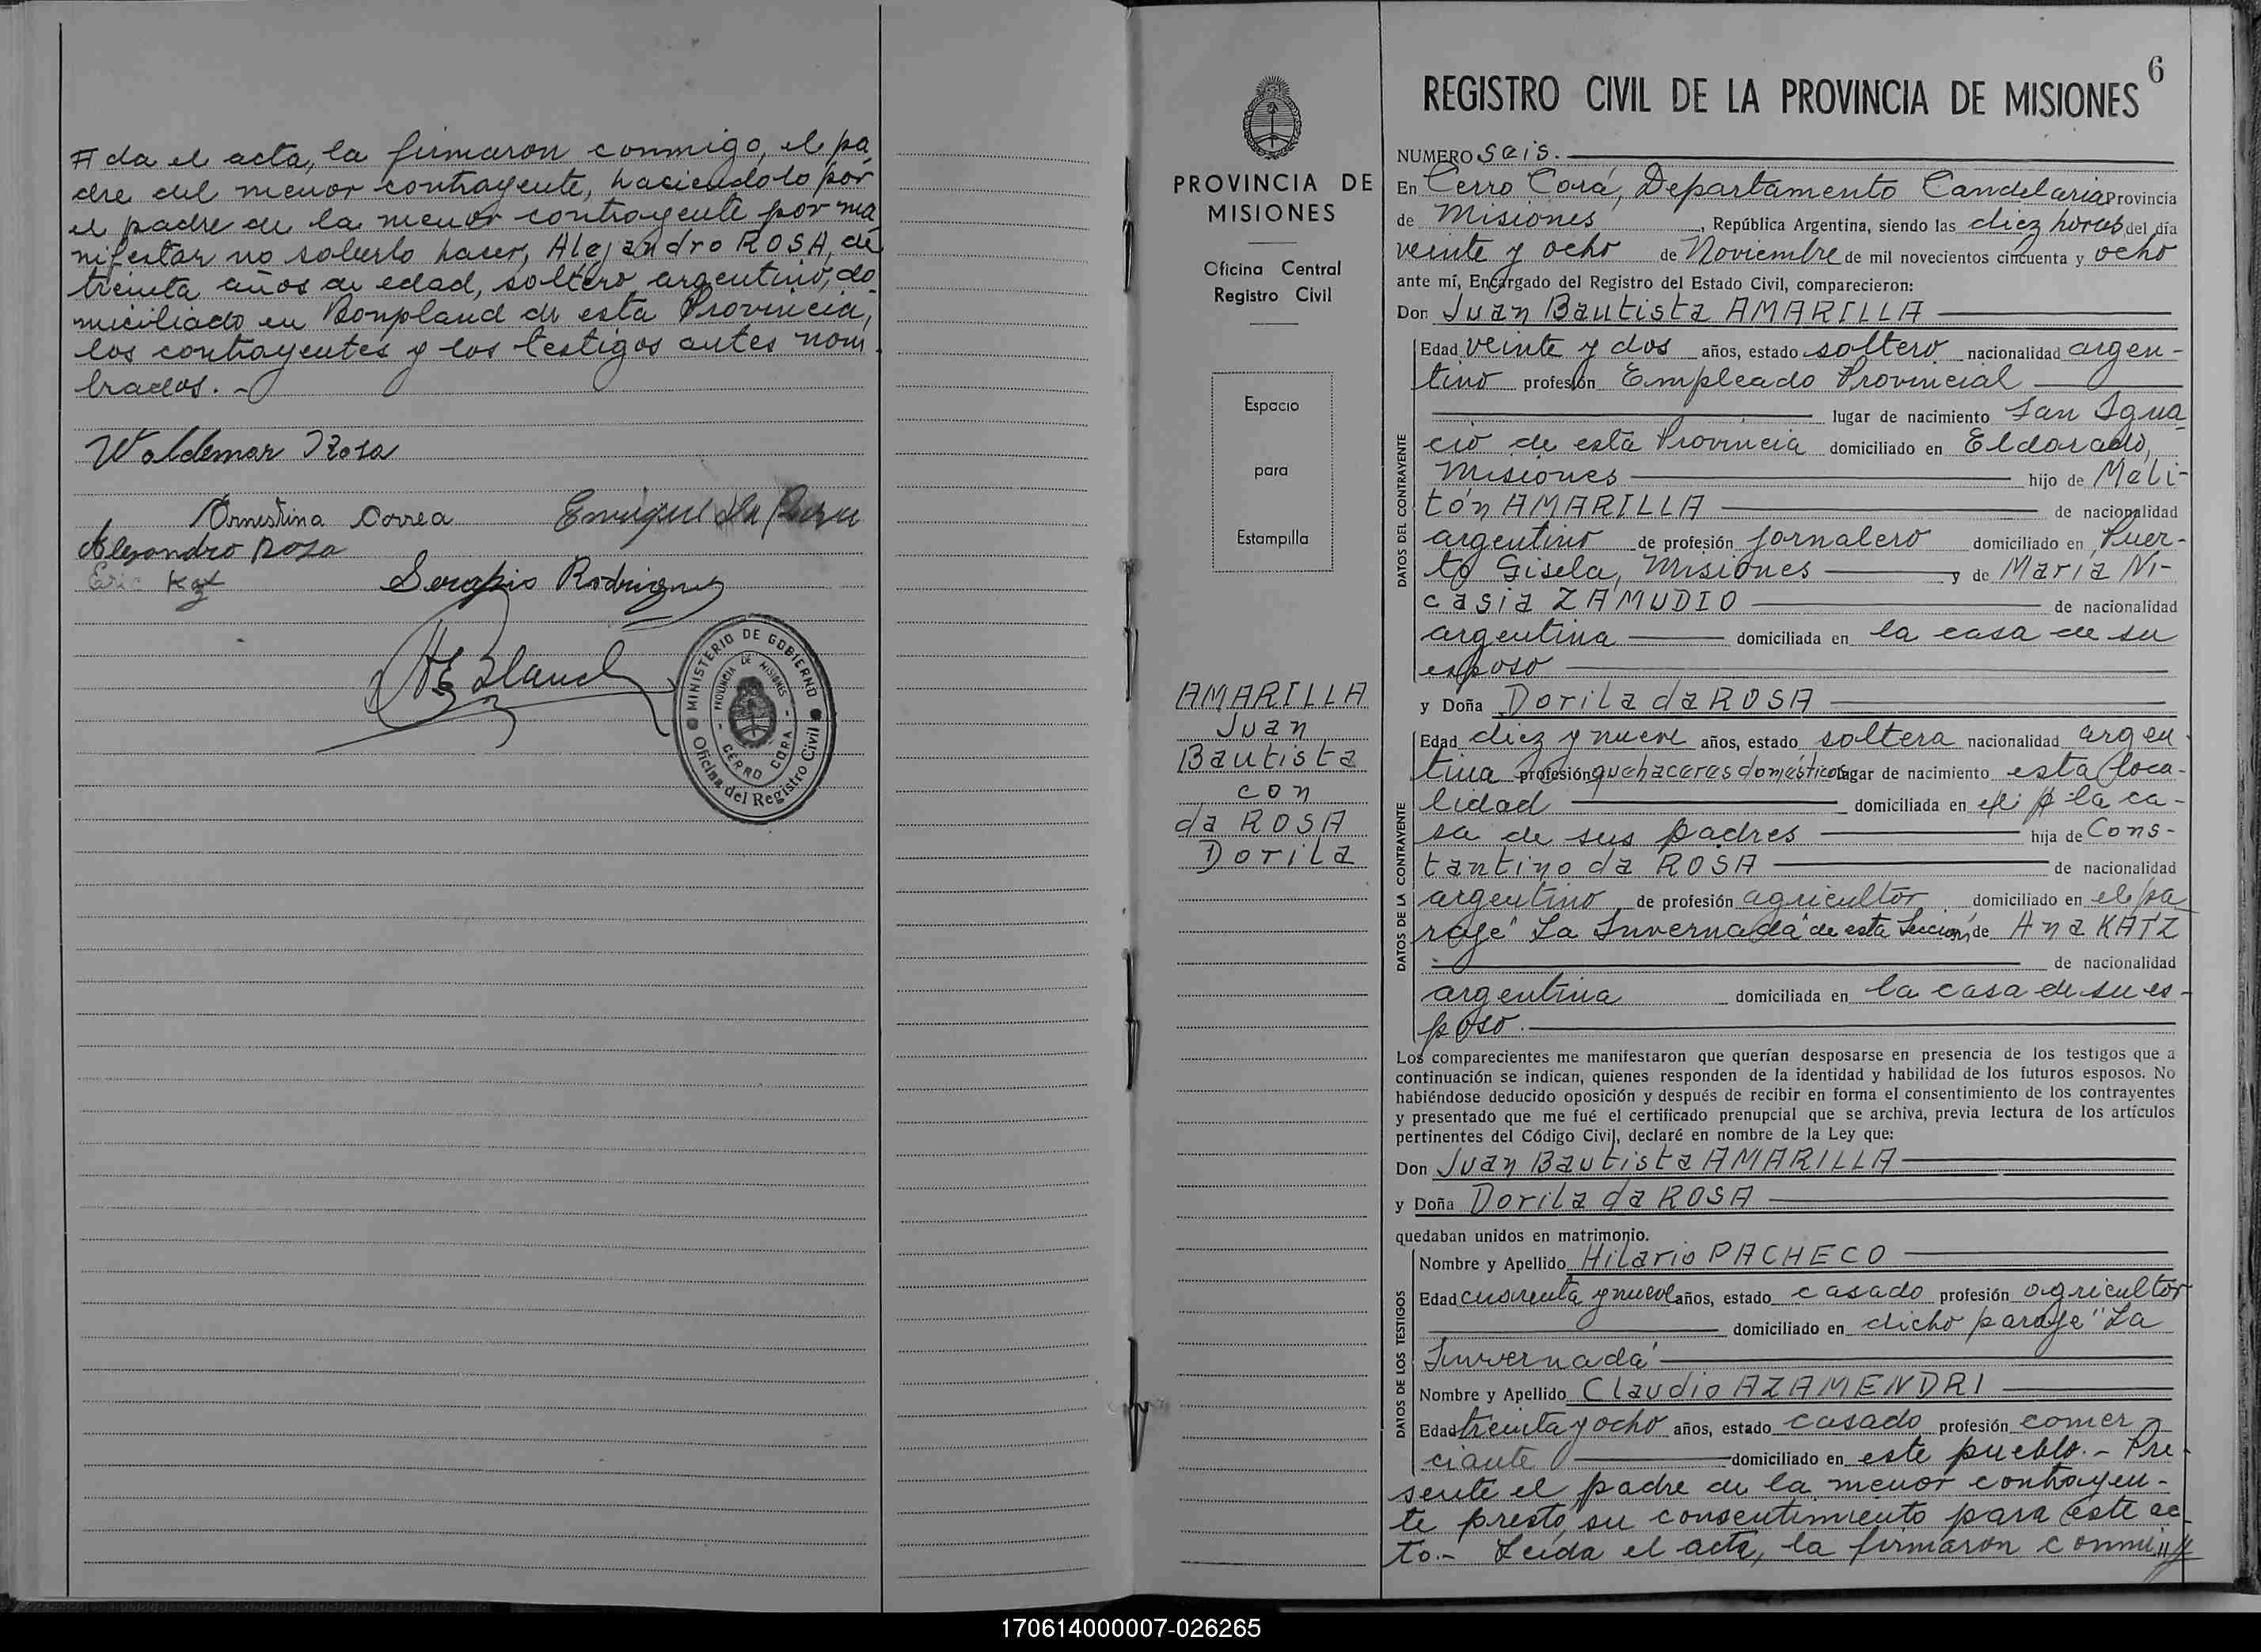 ∓ da el acta, la firmaron conmigo, el pa
dre del menor contrayente, haciendolo por
el padre de la menor contrayente por ma
nifestar no saberlo hacer, Alejandro ROSA, de
treinta años de edad, soltero, argentino, do-
miciliado en Bonpland de esta Provincia,
los contrayentes y los testigos antes nom
brados. -
Waldemar Rosa
Ornestina Correa
Alejandro Rosa
Eric Kaz
Serapio Rodriguez
MINISTERIO DE GOBIERNO
PROVINCIA DE MISIONES
CERRO CORA
Oficina del Registro Civil
PROVINCIA DE
MISIONES
Oficina Central
Registro Civil
Espacio
para
Estampilla
AMARILLA
Juan
Bautista
con
da ROSA
Dorila
6
REGISTRO CIVIL DE LA PROVINCIA DE MISIONES
NUMERO Seis.
En Cerro Corá, Departamento Candelaria Provincia
de Misiones, República Argentina, siendo las diez horas del día
veinte y ocho de Noviembre de mil novecientos cincuenta y ocho
ante mí, Encargado del Registro del Estado Civil, comparecieron:
Don Juan Bautista AMARILLA
DATOS DEL CONTRAYENTE
Edad veinte y dos años, estado soltero nacionalidad argen-
tino profesión Empleado Provincial
lugar de nacimiento San Igna
cio de esta Provincia domiciliado en Eldorado,
Misiones hijo de Meli-
tón AMARILLA de nacionalidad
argentino de profesión jornalero domiciliado en Puer-
to Gisela, Misiones y de María Ni-
casia ZAMUDIO de nacionalidad
argentina domiciliada en la casa de su
esposo
y Doña Dorila da ROSA
DATOS DE LA CONTRAYENTE
Edad diez y nueve años, estado soltera nacionalidad argen
tina profesión quehaceres domésticos lugar de nacimiento esta loca-
lidad domiciliada en la ca-
sa de sus padres hija de Cons-
tantino da ROSA de nacionalidad
argentino de profesión agricultor domiciliado en el pa
raje "La Invernada" de esta Sección, de Ana KATZ
de nacionalidad
argentina domiciliada en la casa de su es-
poso.
Los comparecientes me manifestaron que querían desposarse en presencia de los testigos que a
continuación se indican, quienes responden de la identidad y habilidad de los futuros esposos. No
habiéndose deducido oposición y después de recibir en forma el consentimiento de los contrayentes
y presentado que me fué el certificado prenupcial que se archiva, previa lectura de los artículos
pertinentes del Código Civil, declaré en nombre de la Ley que:
Don Juan Bautista AMARILLA
y Doña Dorila da ROSA
quedaban unidos en matrimonio.
DATOS DE LOS TESTIGOS
Nombre y Apellido Hilario PACHECO
Edad cuarenta y nueve años, estado casado profesión agricultor
domiciliado en dicho paraje "La
Invernada"
Nombre y Apellido Claudio AZAMENDRI
Edad treinta y ocho años, estado casado profesión comer
ciante domiciliado en este pueblo. - Pre
sente el padre de la menor contrayen-
te prestó su consentimiento para este ac
to.- Leida el acta, la firmaron conmi //
170614000007-026265